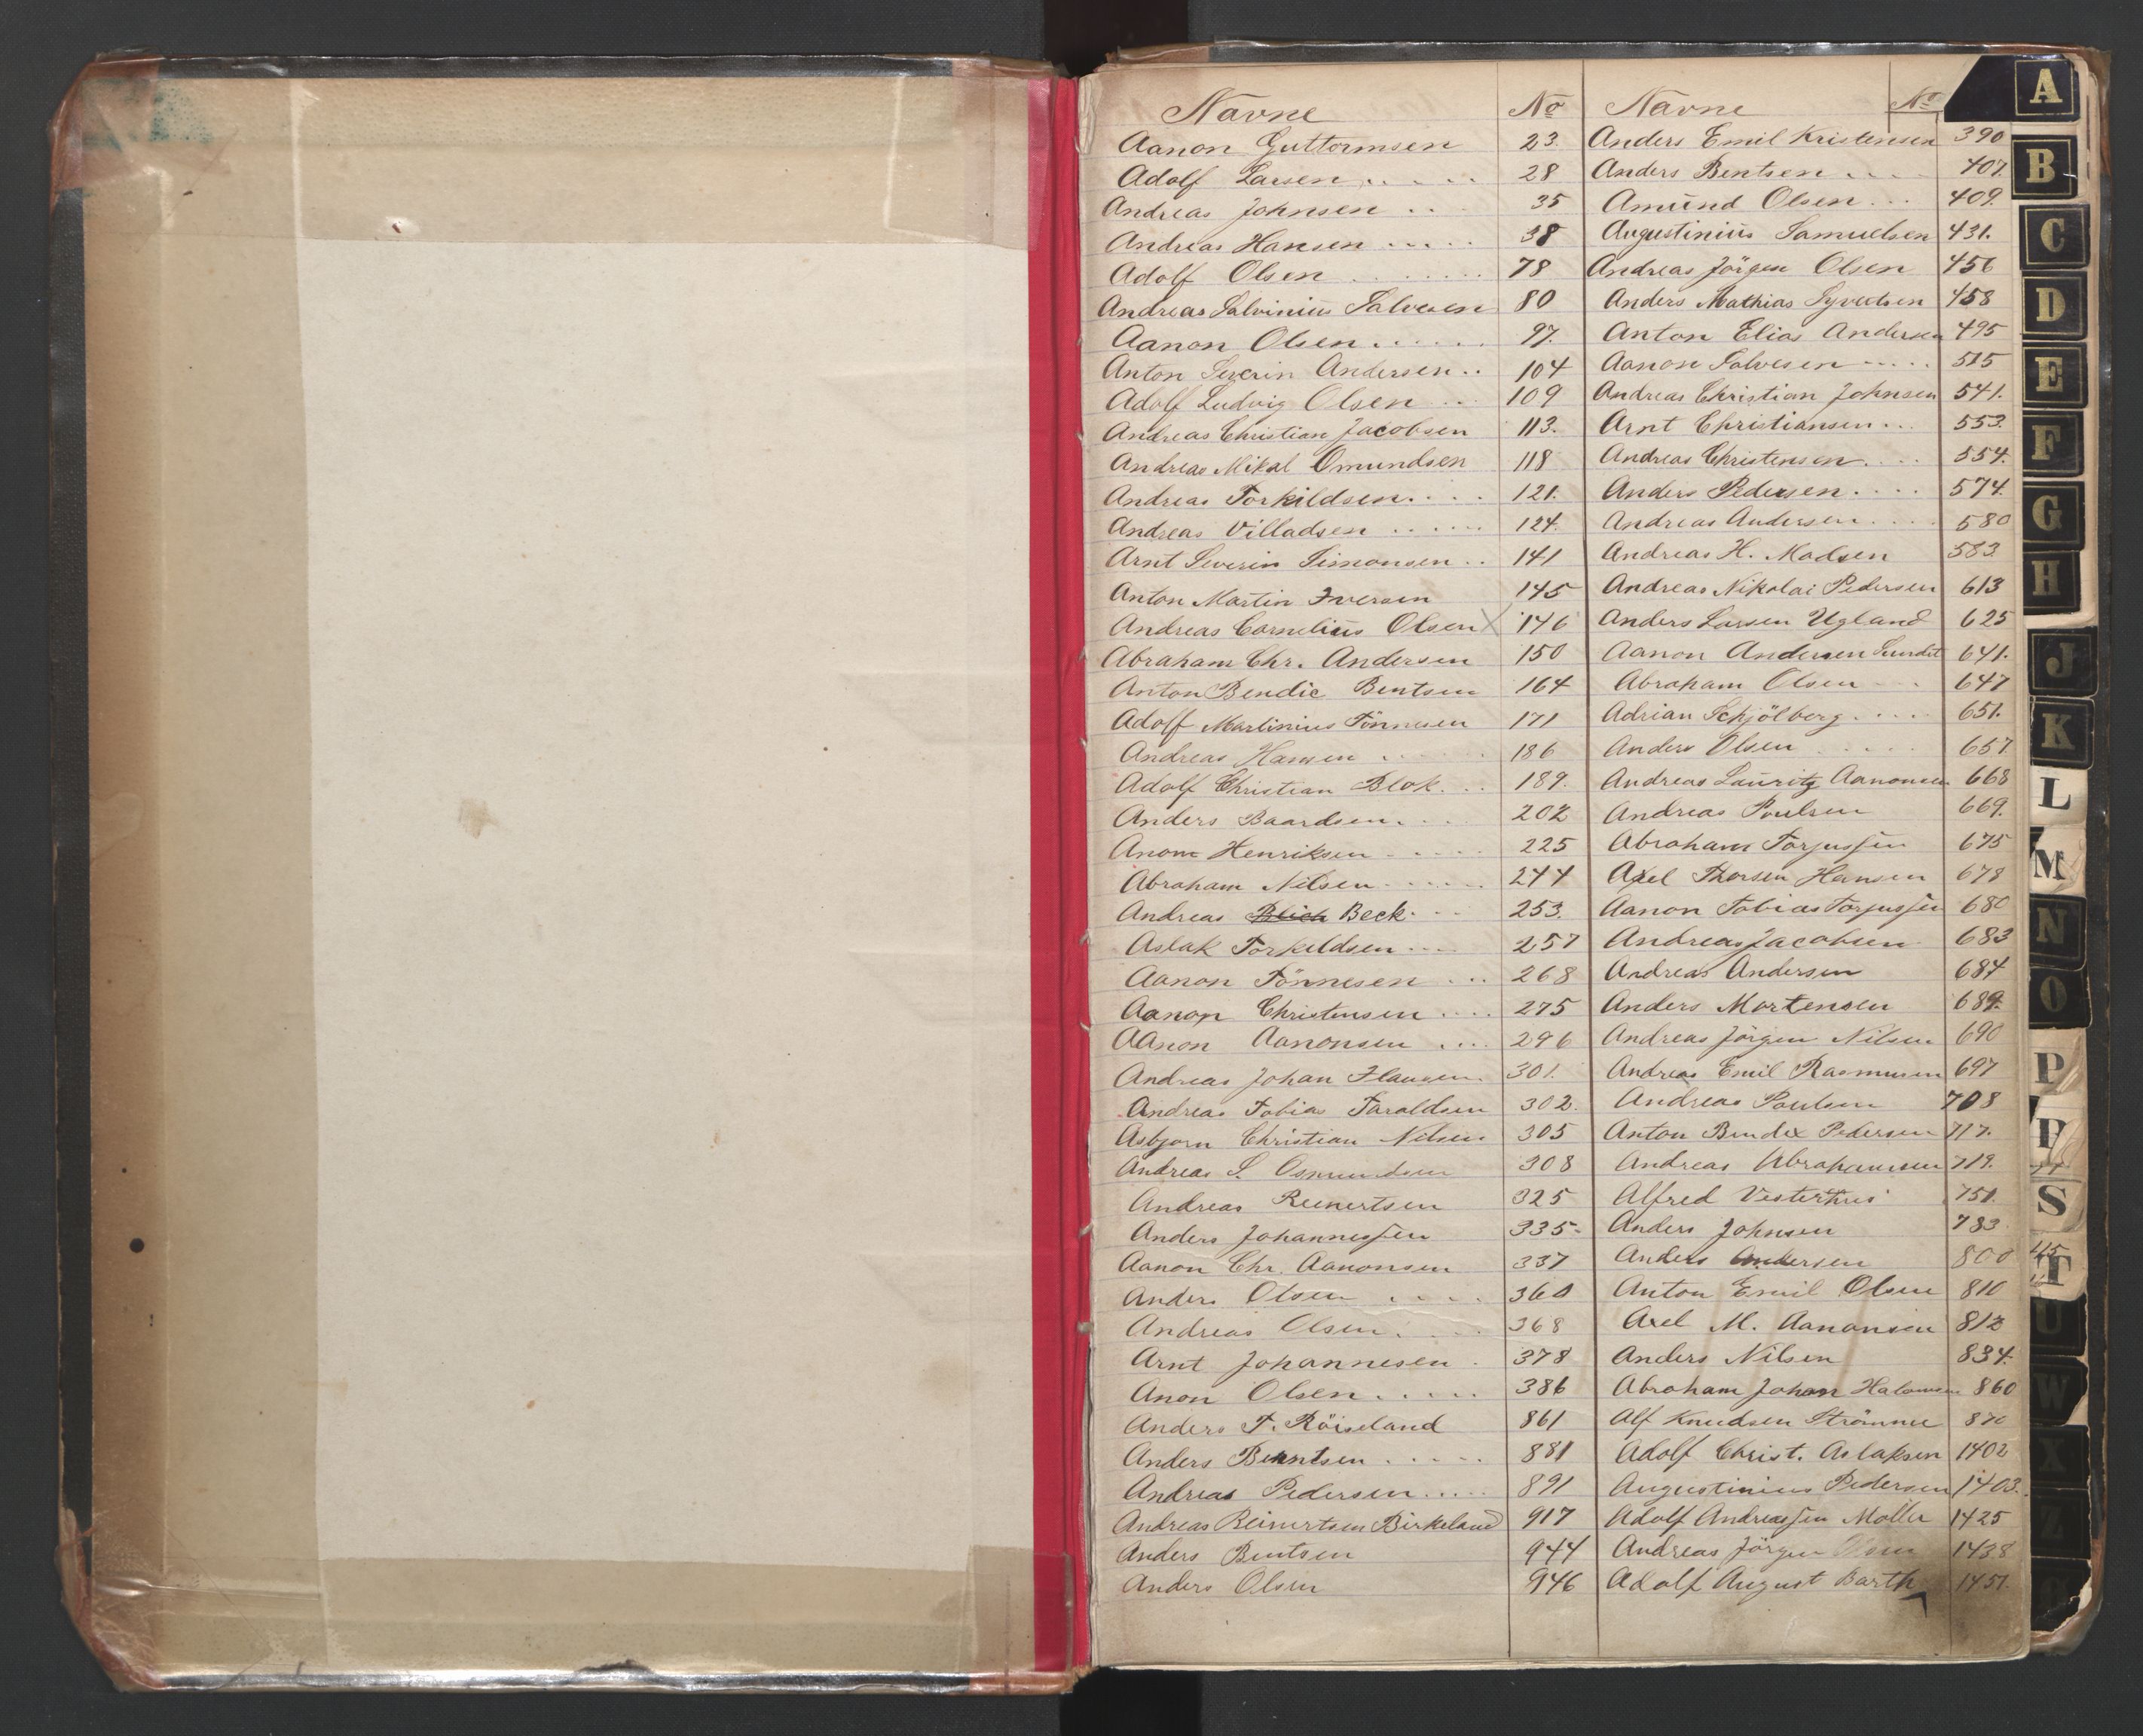 Navne No
Aanon Guttormsen 23.
Adolf Larsen 28
Andreas Johnsen 35
Andreas Hansen 38
Adolf Olsen 78
Andreas Salvinius Salvesen 80
Aanon Olsen 97.
Anton Severin Andersen 104
Adolf Ludvig Olsen 109
Andreas Christian Jacobsen 113.
Andreas Mikal Omundsen 118
Andreas Torkildsen 121.
Andreas Villadsen 124.
Arnt Severin Simonsen 141
Anton Martin Iversen 145
Andreas Cornelius Olsen X 146
Abraham Chr. Andersen 150
Anton Bendic Bentsen 164
Adolf Martinius Tönnesen 171
Andreas Hansen 186
Adolf Christian Blok 189.
Anders Baardsen 202
Anom Henriksen 225
Abraham Nilsen 244
Andreas Blich Beck 253.
Aslak Torkeldsen 257
Aanon Tönnesen 268
Aanon Christensen 275
AAnon Aanonsen 296
Andreas Johan Haugen 301.
Andreas Tobias Taraldsen 302.
Asbjorn Christian Nilsen 305
Andreas S. Osmundsen 308
Andreas Reinertsen 325
Anders Johannessen 335-
Aanon Chr. Aanonsen 337
Anders Olsen 360
Andreas Olsen 368
Arnt Johannesen 378
Anon Olsen 386
Anders T. Röiseland 861
Anders Berntsen 881
Andreas Pedersen 891
Andreas Reinertsen Birkeland 917
Anders Bentsen 944
Anders Olsen 946
Navne No
Anders Emil Kristensen 390
Anders Bentsen 407.
Amund Olsen 409.
Augustinius Samuelsen 431.
Andreas Jörgen Olsen 456
Anders Mathias Syvertsen 458
Anton Elias Andersen 495
Aanon Salvesen 515
Andreas Christian Johnsen 541.
Arnt Christiansen 553.
Andreas Christensen 554.
Anders Pedersen 574.
Andreas Andersen 580
Andreas H. Madsen 583.
Andreas Nikolai Pedersen 613
Anders Larsen Ugland 625
Aanon Andersen Sundet 641.
Abraham Olsen 647
Adrian Schjölberg 651.
Anders Olsen 657
Andreas Lauritz Aanonsen 668
Andreas Poulsen 669.
Abraham Torjussen 675
Axel Thorsen Hansen 678
Aanon Tobias Torjussen 680
Andreas Jacobsen 683
Andreas Andersen 684
Anders Mortensen 689.
Andreas Jörgen Nilsen 690
Andreas Emil Rasmusen 697
Andreas Poulsen 708
Anton Bendix Pedersen 717.
Andreas Abrahamsen 719.
Alfred Vesterhus 751.
Anders Johnsen 783.
Anders Andersen 800
Anton Emil Olsen 810
Axel M. Aanonsen 812
Anders Nilsen 834.
Abraham Johan 860
Alf Knudsen Strömme 870
Adolf Christ. Aslaksen 1402
Augustinius Pedersen 1403.
Adolf Andreassen Moller 1425
Andreas Jörgen Olsen 1438
Adolf August Barth 1451.
A
B
C
D
E
F
G
H
J
K
L
M
N
O
P
S
T
U
W
X
Z